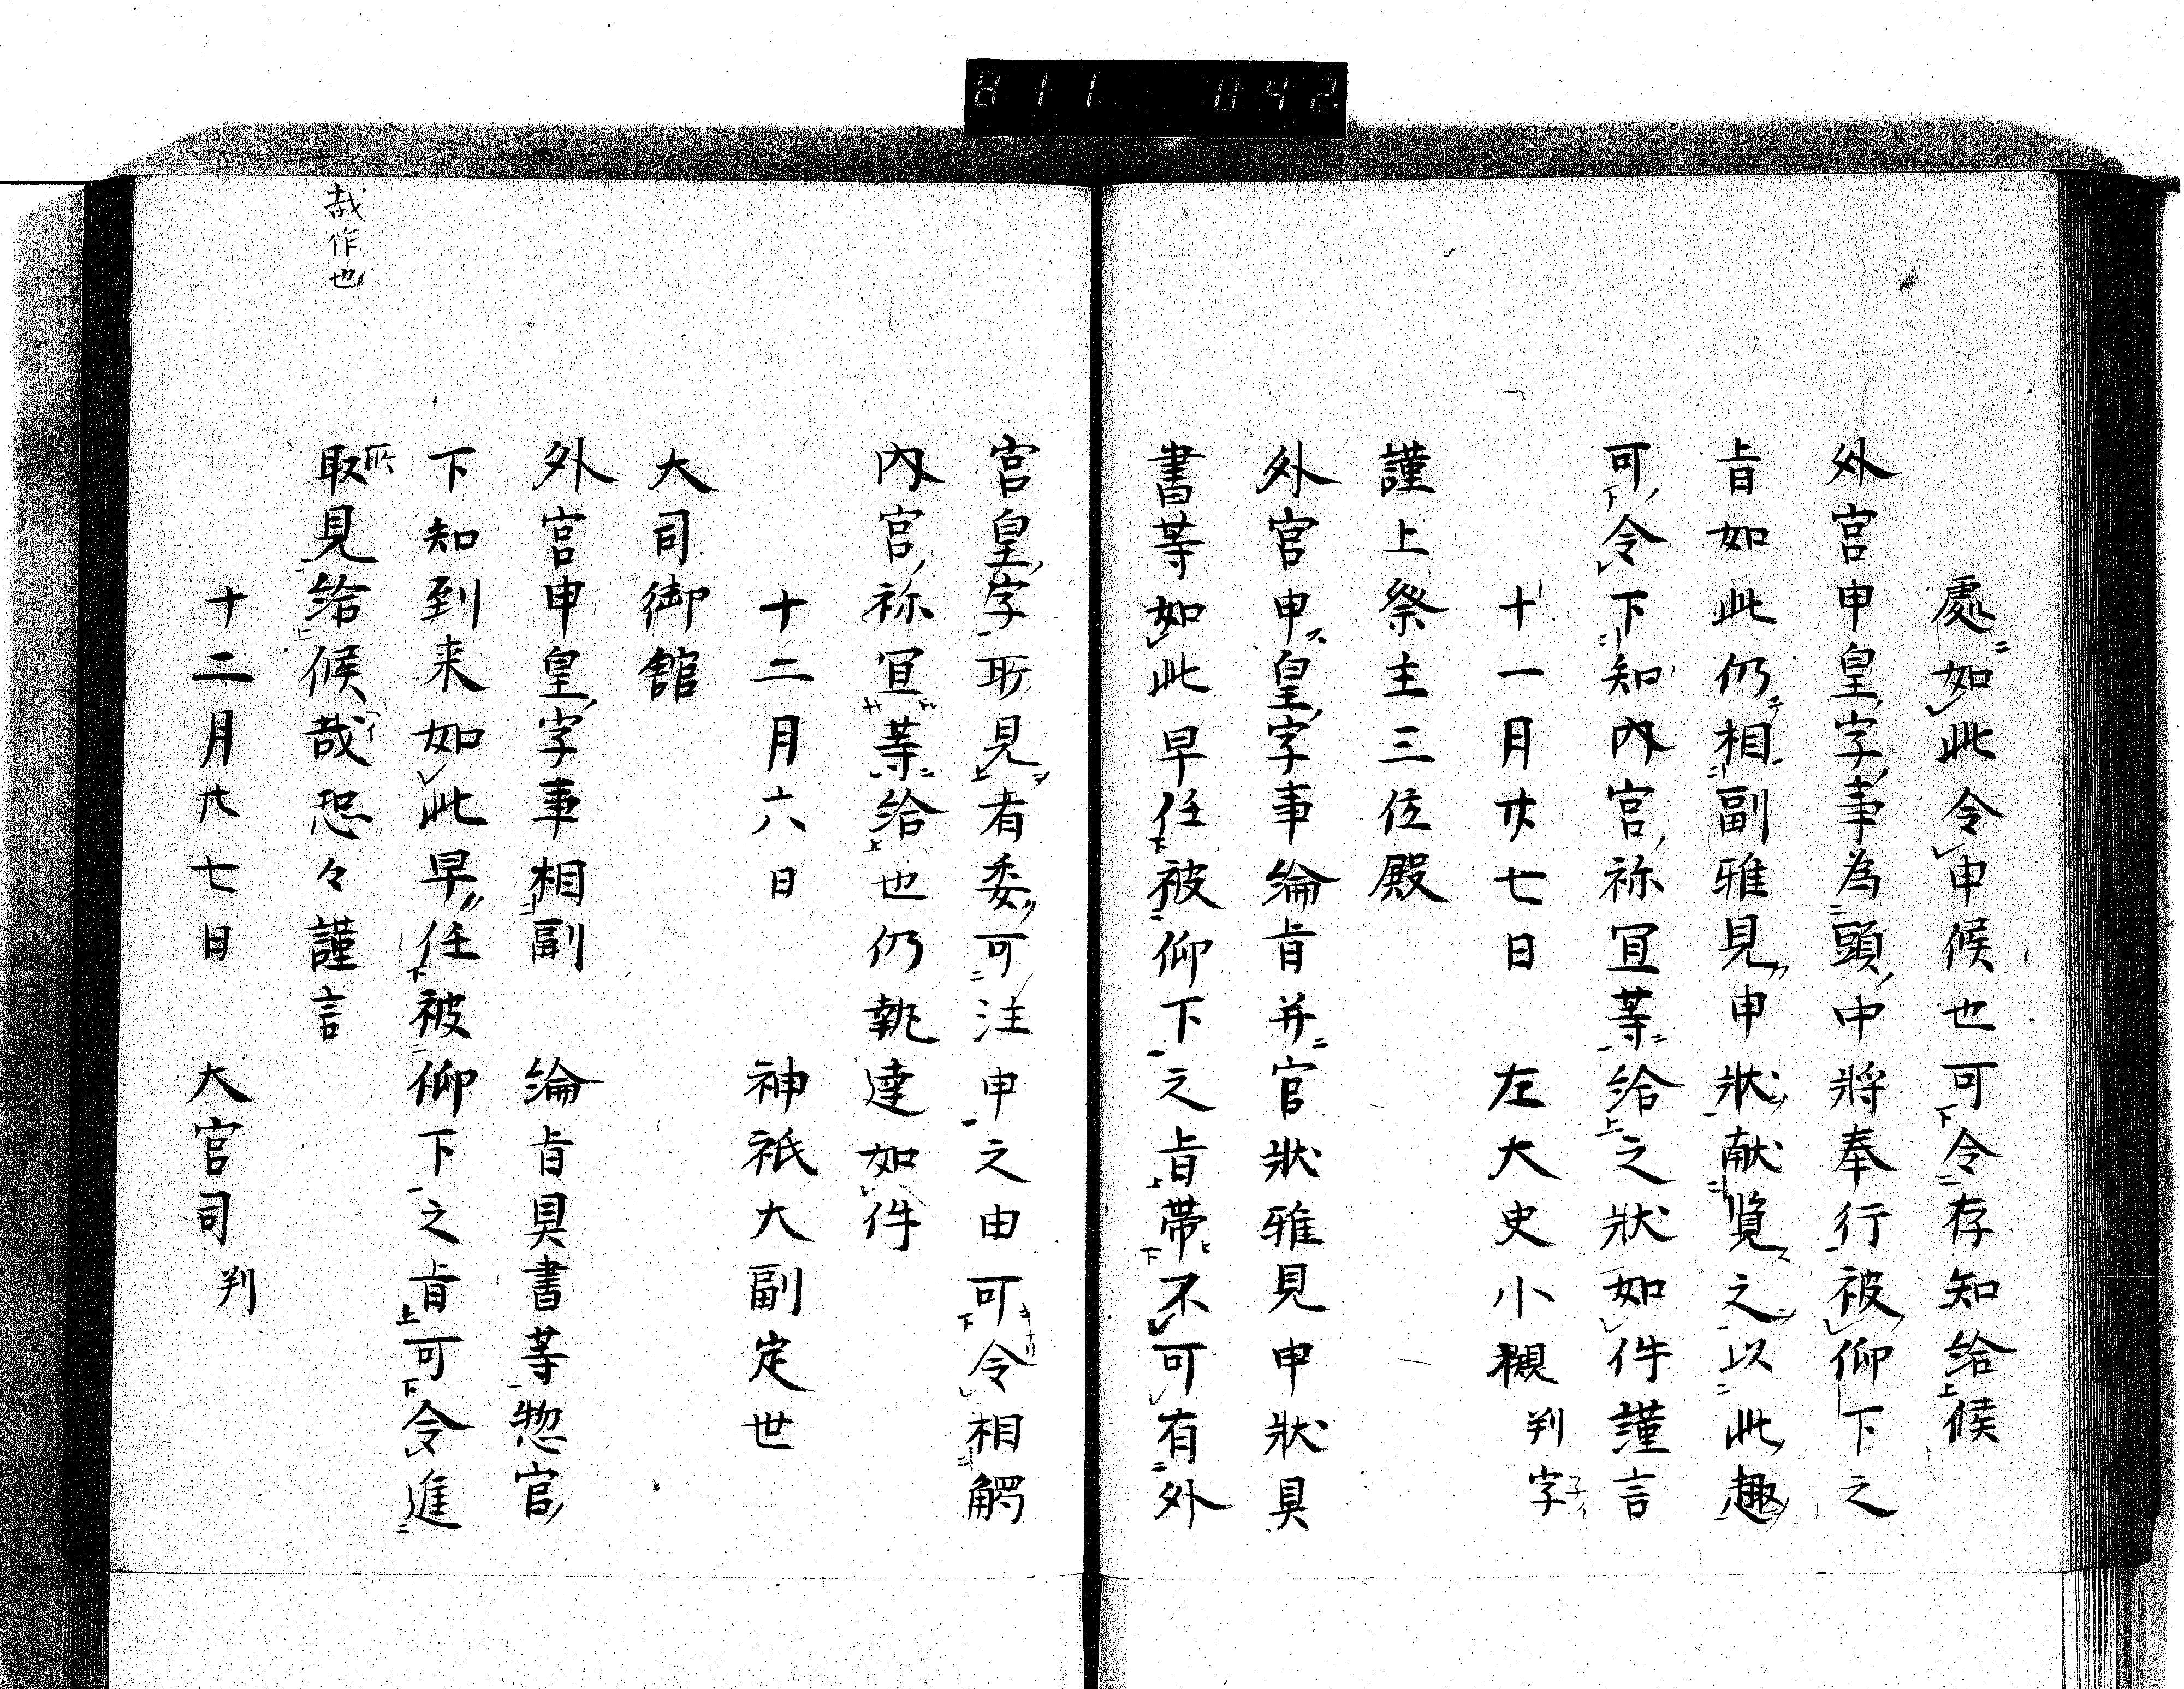 811 042
處如此令申候也可令存知給候
外宮申皇字事為頭中將奉行被仰下之
旨如此仍相副雅見申狀献覧之以此趣
可令下知內宮祢宜等給之狀如件謹言
十一月廿七日 左大史小槻 判字
謹上祭主三位殿
外宮申皇字事綸旨并官狀雅見申狀具
書等如此早任被仰下之旨帶不可有外
宮皇字所見者委可注申之由可令相觸
內宮祢宜等給也仍執達如件
十二月六日 神祇大副定世
大司御舘
外宮申皇字事相副 綸旨具書等惣官
下知到来如此早任被仰下之旨可令進
取見給候哉恐々謹言
哉作也
十二月廿七日 大宮司 判